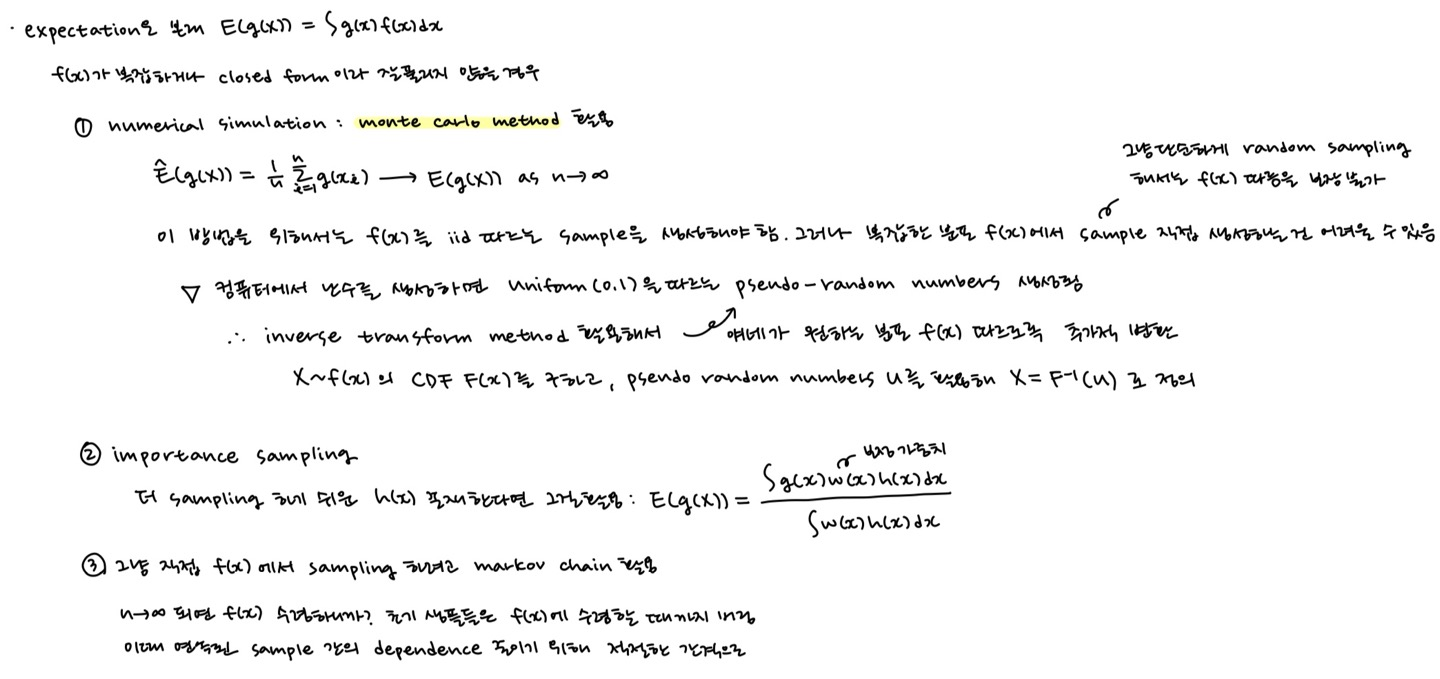 · expectation을 보며 E(g(X)) = ∫g(x)f(x)dx
f(x)가 복잡하거나 closed form 이라 잘 풀리지 않을 경우
① numerical simulation : monte carlo method 활용
Ê(g(X)) = 1/n Σ_{i=1}^{n} g(x_i) → E(g(X)) as n→∞
그냥 단순하게 random sampling
해서는 f(x) 따름을 보장 불가
이 방법을 위해서는 f(x)를 iid 따르는 sample을 생성해야 함. 그러나 복잡한 분포 f(x)에서 sample 직접 생성하는 건 어려울 수 있음
▽ 컴퓨터에서 난수를 생성하면 uniform(0,1)을 따르는 psendo-random numbers 생성됨
∴ inverse transform method 활용해서 얘네가 원하는 분포 f(x) 따르도록 추가적 변환
X~f(x)의 CDF F(x)를 구하고, psendo random numbers u를 활용해 X = F⁻¹(u) 로 정의
② importance sampling
보정가중치
더 sampling 하기 쉬운 h(x) 존재한다면 그걸 활용 : E(g(X)) = ∫g(x)w(x)h(x)dx / ∫w(x)h(x)dx
③ 그냥 직접 f(x)에서 sampling 하려고 markov chain 활용
n→∞ 되면 f(x) 수렴하니까? 초기 샘플들은 f(x)에 수렴할 때까지 버림
이때 연속된 sample 간의 dependence 줄이기 위해 적절한 간격으로